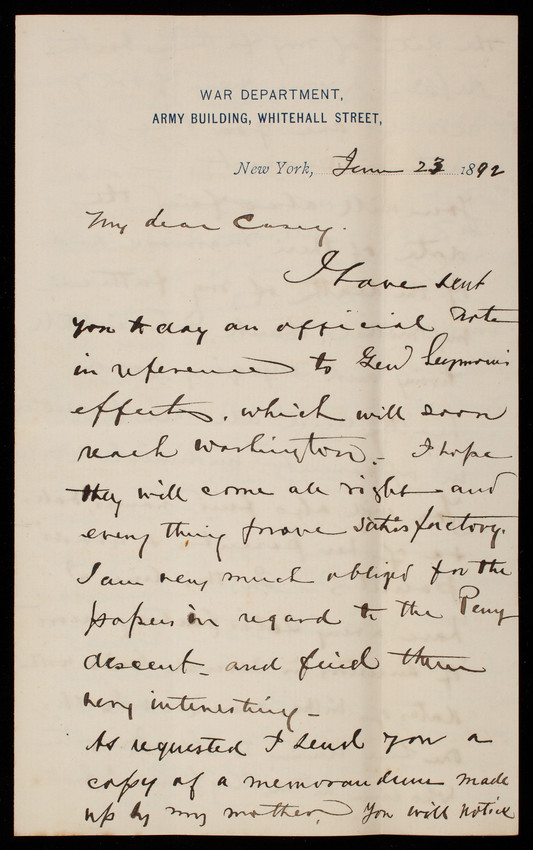 WAR DEPARTMENT,
ARMY BUILDING, WHITEHALL STREET,
New York, June 23 1892
My dear Casey.
I have sent
you to day an official note
in reference to Genl Seymour's
effects, which will soon
reach Washington. I hope
they will come all right and
every thing prove satisfactory.
I am very much obliged for the
papers in regard to the Perry
descent and find them
very interesting -
As requested I send you a
copy of a memorandum made
up by my mother. You will notice